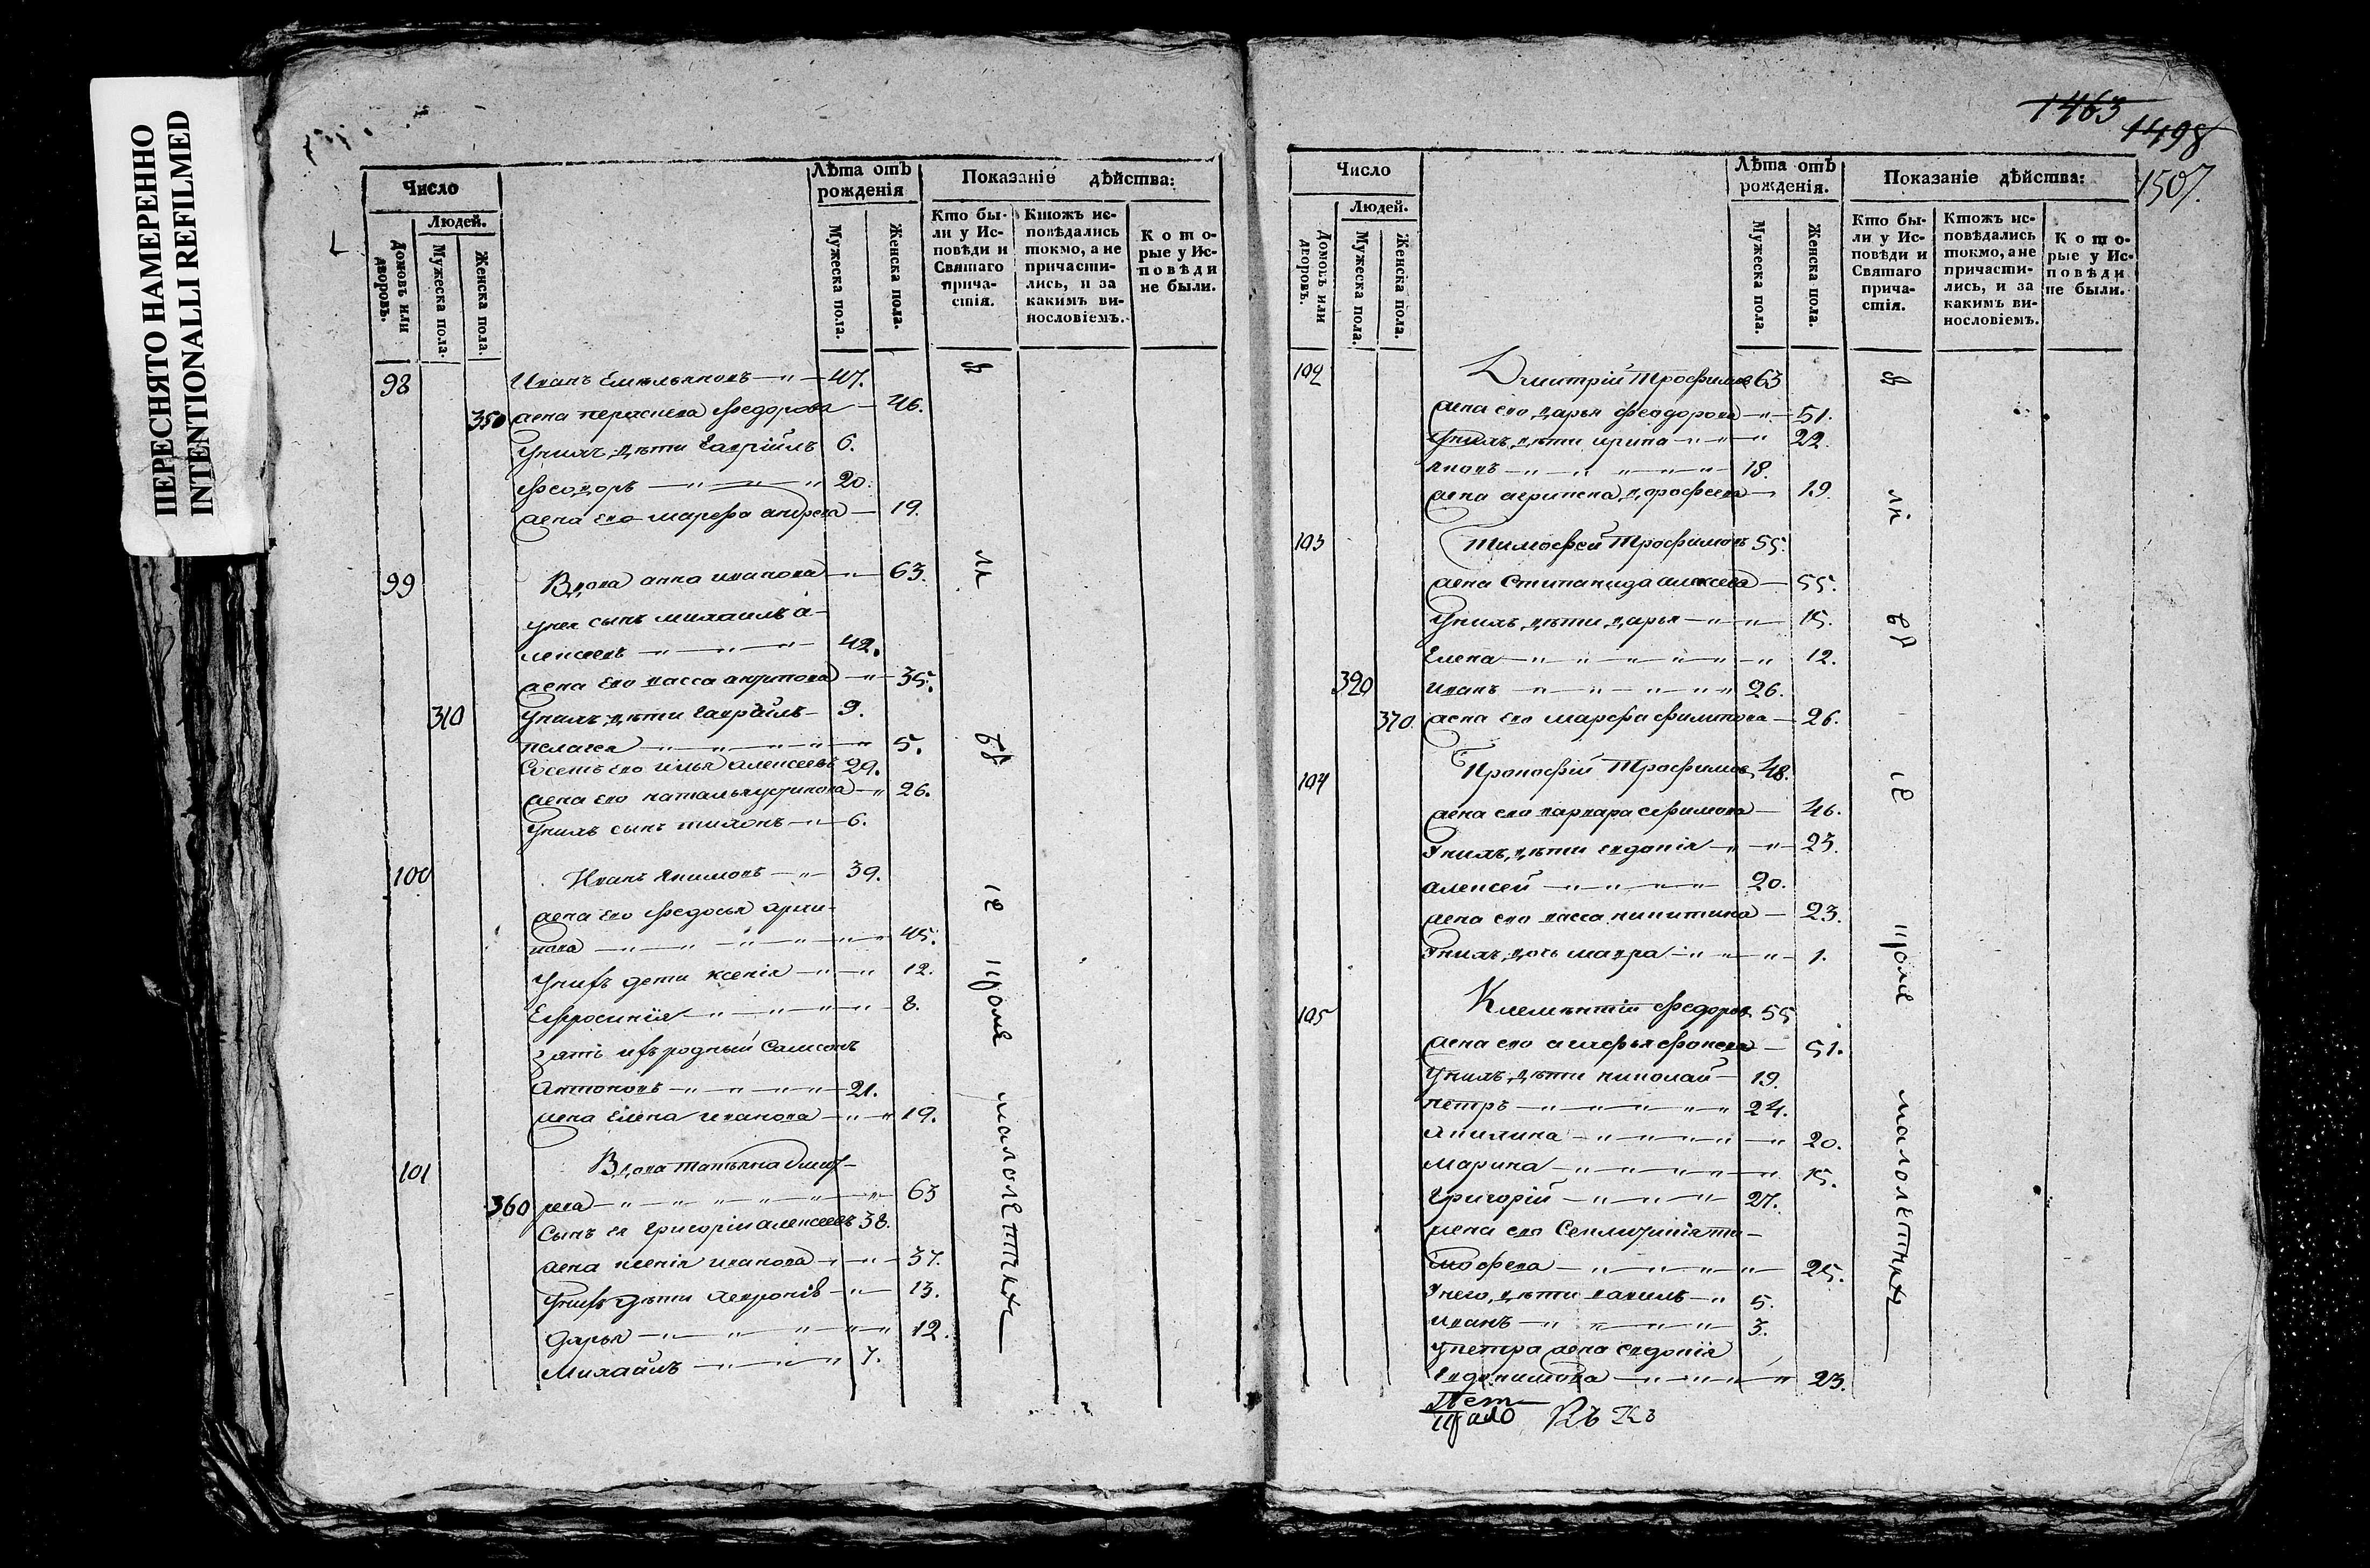 ПЕРЕСНЯТО НАМЕРЕННО
INTENTIONALLI REFILMED
Число
Людей.
Домовъ или дворовъ.
Мужеска пола.
Женска пола.
Лѣта отъ рожденія
Мужеска пола.
Женска пола.
Показаніе дѣйства:
Кто бы-
ли у Ис-
повѣди и
Святаго
прича-
стія.
Ктожъ ис-
повѣдались
токмо, а не
причасти-
лись, и за
какимъ ви-
нословіемъ.
Кото-
рые у Ис-
повѣди
не были.
98 Иванъ Емельяновъ 47.
350 жена Федорова 46.
Унихъ дѣти Гавріилъ 6.
Феодоръ 20.
жена его марфа 19.
99 Вдова анна иванова 63.
унея сынъ михаилъ а-
лексеевъ 42.
жена его васса 35.
310 Унихъ дѣти Гавріилъ 9.
пелагея 5.
его илья алексеевъ 29.
жена его наталья 26.
Унихъ сынъ тихонъ 6.
100 Иванъ Якимовъ 39.
жена его федосья архи-
пова 45.
Унихъ дети ксенія 12.
Ефросинія 8.
зять ихъ родный Самсонъ
Антоновъ 21.
жена Елена иванова 19.
101 Вдова татьяна
360 63
Сынъ ея григорій алексеевъ 38.
жена ксенія иванова 37.
Унихъ дѣти 13.
Дарья 12.
Михаилъ 7.
малолѣтныхъ
1463
1498
1507.
Число
Людей.
Домовъ или дворовъ.
Мужеска пола.
Женска пола.
Лѣта отъ рожденія.
Мужеска пола.
Женска пола.
Показаніе дѣйства:
Кто бы-
ли у Ис-
повѣди и
Святаго
прича-
стія.
Ктожъ ис-
повѣдались
токмо, а не
причасти-
лись, и за
какимъ ви-
нословіемъ.
Кото-
рые у Ис-
повѣди
не были.
102 Дмитрій Трофимовъ 63
жена его дарья феодорова 51.
Унихъ дѣти ирина 22.
яковъ 18.
жена дорофеева 19.
103 Тимофей Трофимовъ 55.
жена Стипанида алексева 55.
Унихъ дѣти дарья 15.
Елена 12.
320 иванъ 26.
370 жена его марфа филипова 26.
104 Прокофій Трофимовъ 48.
жена его варвара ефимова 46.
Унихъ дѣти евдокія 23.
алексей 20.
жена его васса никитина 23.
Унихъ дочь мавра 1.
105 Клементій Федоровъ 55
жена его 51.
Унихъ дѣти николай 19.
петръ 24.
Акилина 20.
Марина 15.
Григорій 27.
жена его ти-
мофеева 25.
Унего дѣти данилъ 5.
иванъ 3.
упетра жена евдокія
евдокимова 23.
малолѣтныхъ